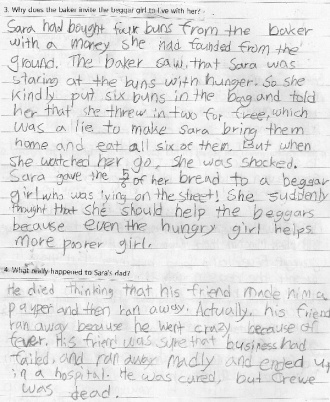 3. Why does the baker invite the beggar girl to live with her?
Sara had bought four buns from the baker
with a money she had founded from the
ground. The baker saw, that Sara was
staring at the buns with hunger. So she
kindly put six buns in the bag and told
her that she threw in two for free, which
was a lie to make Sara bring them
home and eat all six of them. But when
she watched her go, she was shocked.
Sara gave the 5/6 of her bread to a beggar
girl who was lying on the street! She suddenly
thought that she should help the beggars
because even the hungry girl helps
more poorer girl.
4. What really happened to Sara's dad?
He died thinking that his friend made him a
pauper and then ran away. Actually, his friend
ran away because he went crazy because of
fever. His friend was sure that business had
failed, and ran away madly and ended up
in a hospital. He was cured, but Crewe
was dead.